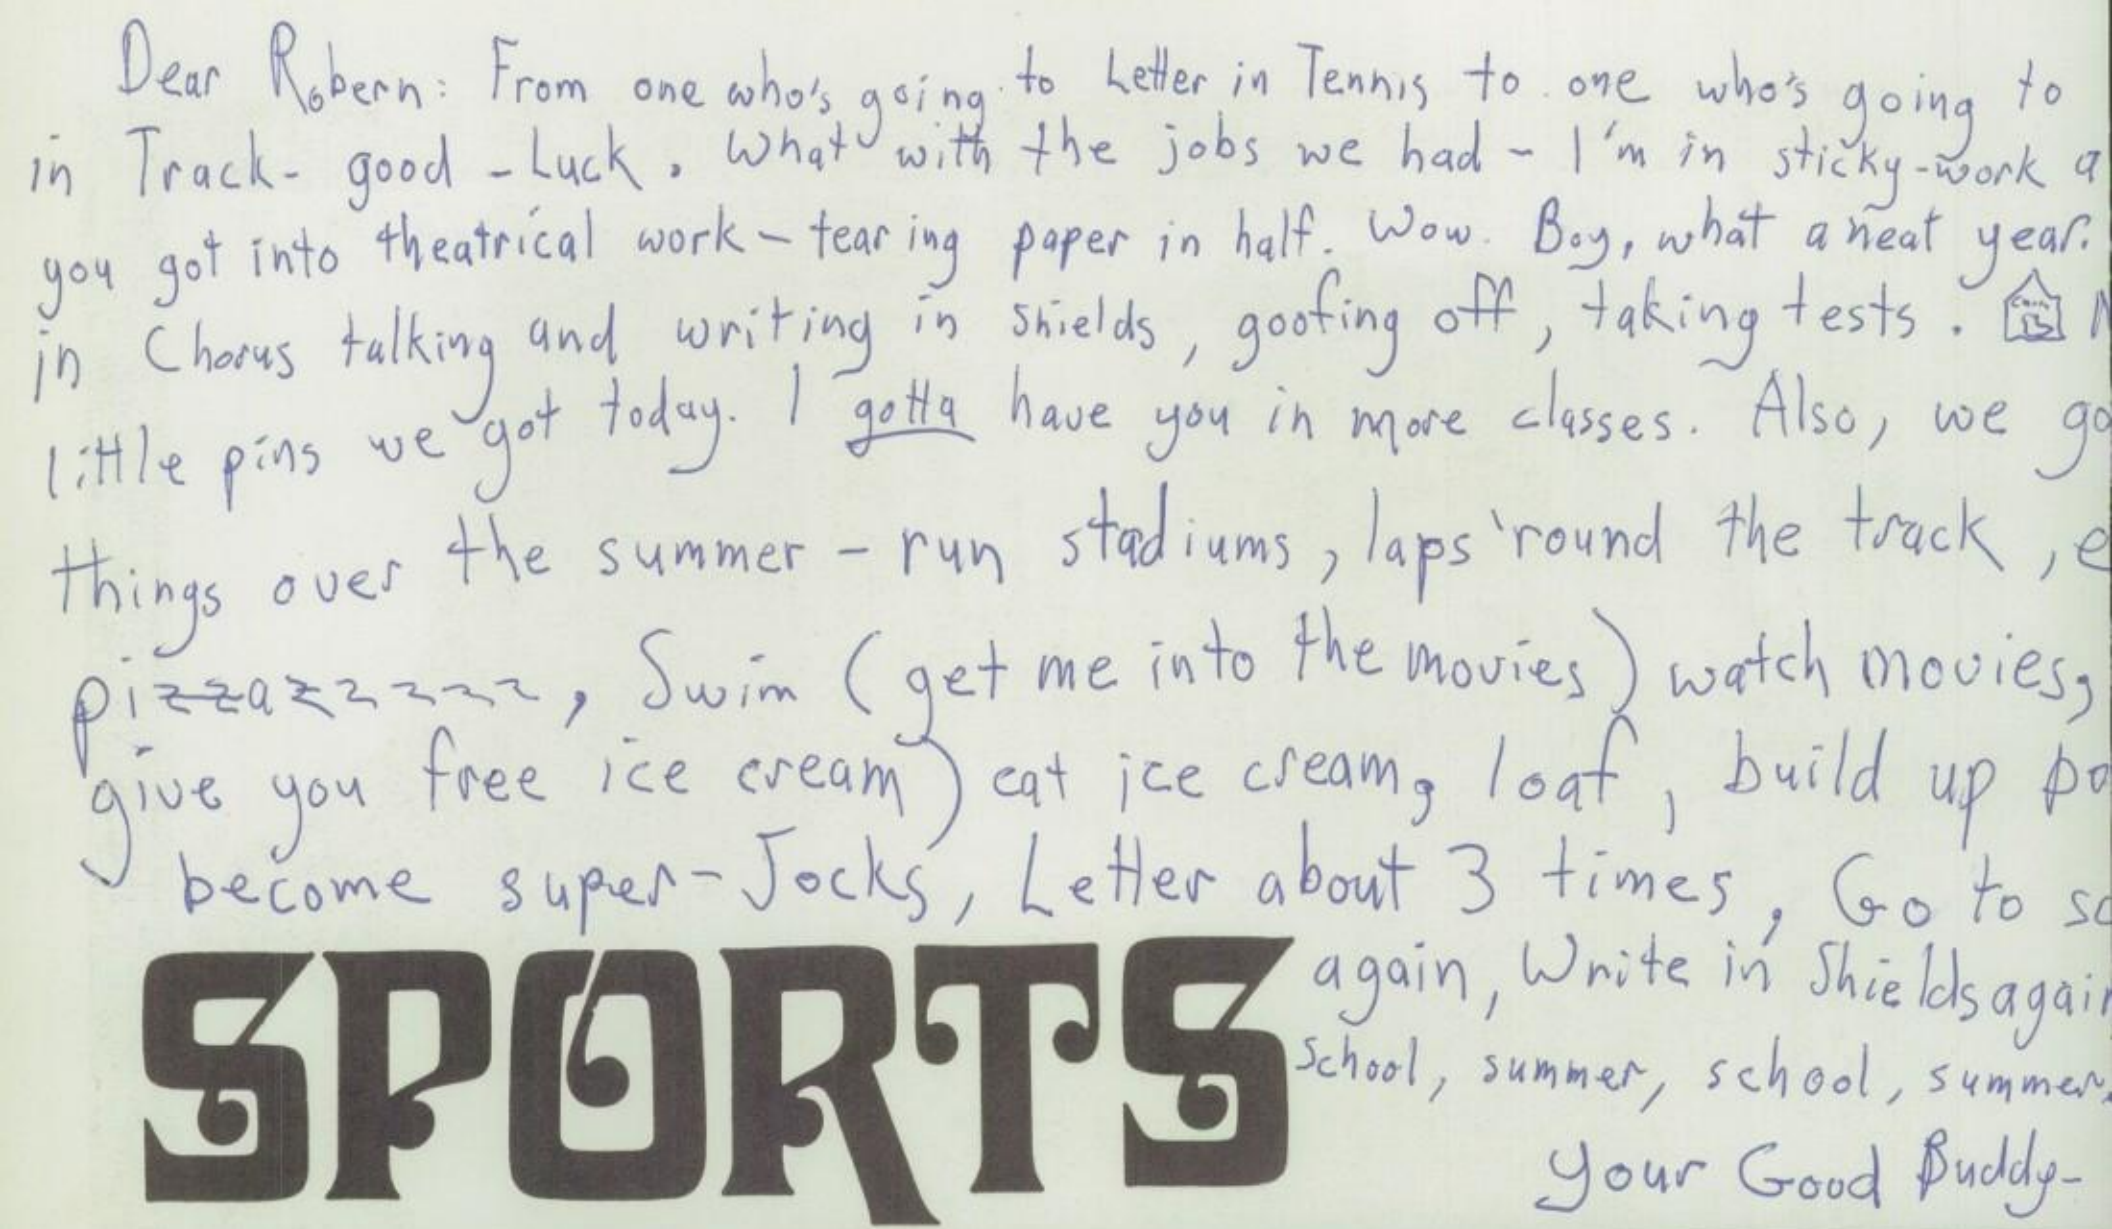 Dear Robern: From one who's going to Letter in Tennis to one who's going to
in Track- good - Luck. What with the jobs we had - I'm in sticky-work a
you got into theatrical work - tearing paper in half. Wow. Boy, what a neat year.
in Chorus talking and writing in shields, goofing off, taking tests.
little pins we got today. I gotta have you in more classes. Also, we go
things over the summer - run stadiums, laps 'round the track, e
pizzazzzzz, Swim (get me into the movies) watch movies,
give you free ice cream) eat ice cream, loaf, build up bo
become super-Jocks, Letter about 3 times, Go to sc
again, Write in Shields again
School, summer, school, summer,
your Good Buddy-
SPORTS